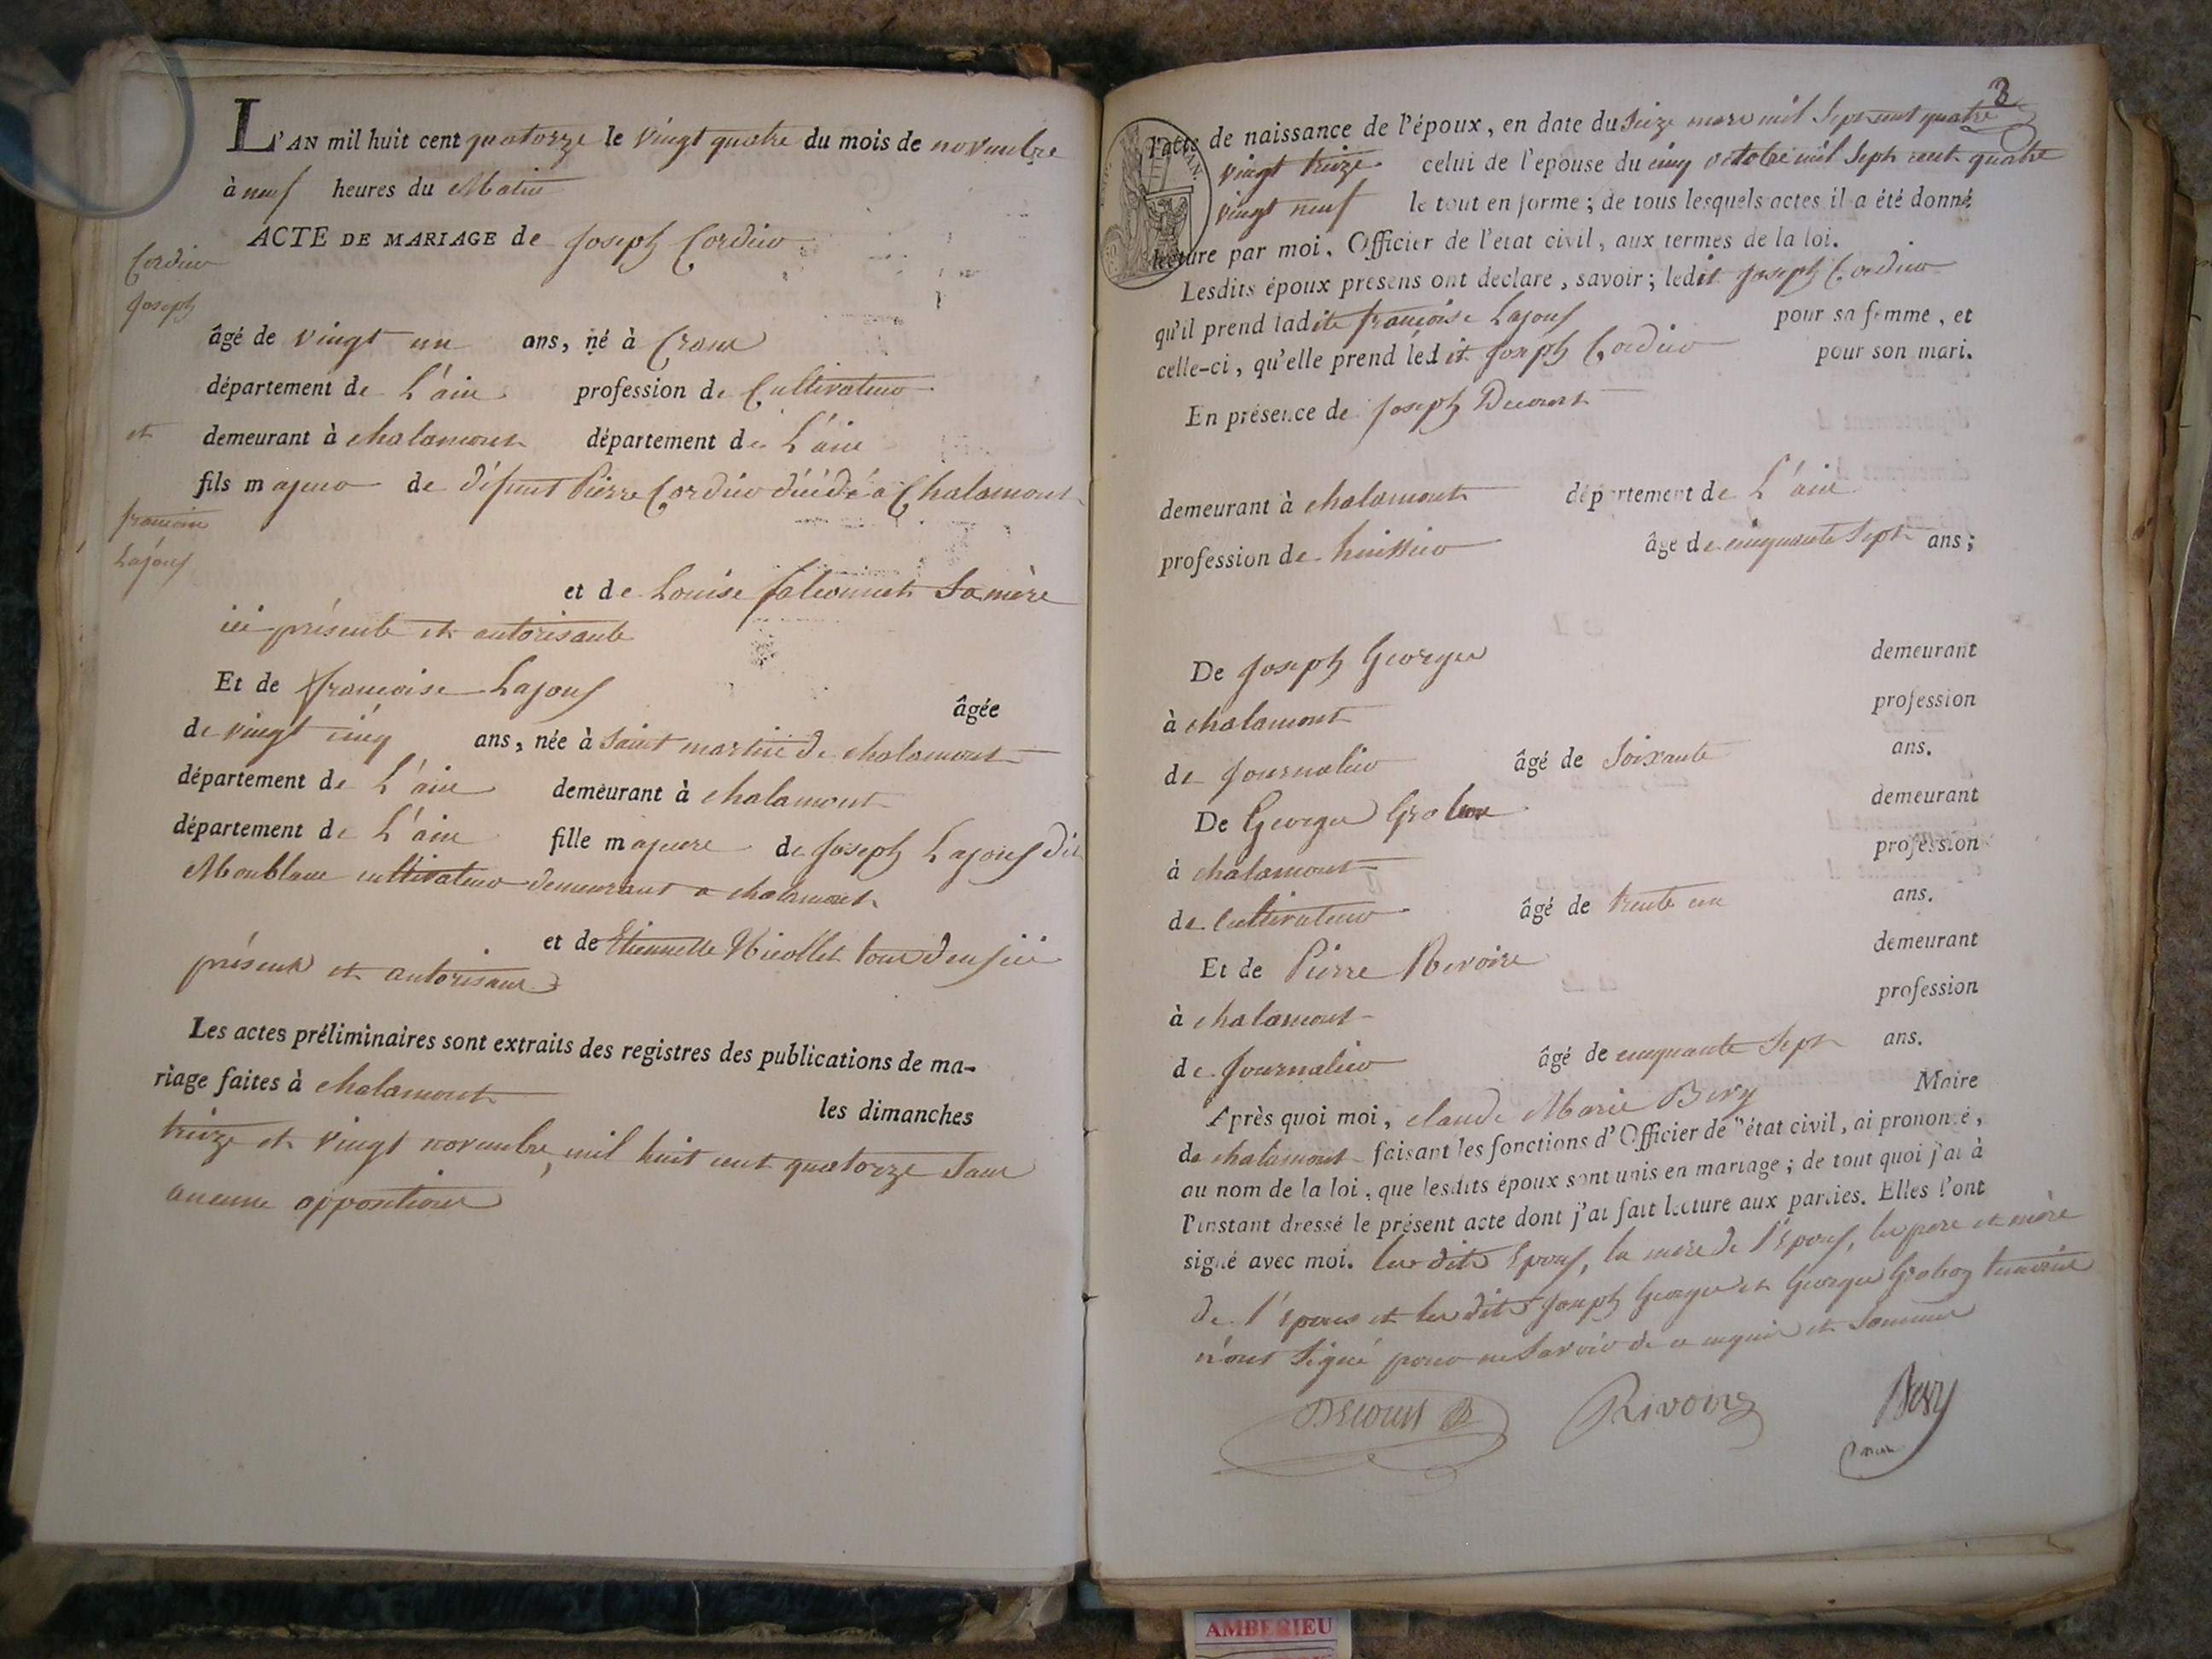 L'AN mil huit cent quatorze le vingt quatre du mois de novembre
à neuf heures du Matin
ACTE DE MARIAGE de Joseph Cordier
Cordier
Joseph
et
francoise
Lajoux
âgé de vingt un ans, né à Crans
département de L'ain profession de Cultivateur
demeurant à chalamont département de L'ain
fils majeur de défunt Pierre Cordier décédé a Chalamont
et de Louise falconnet Sa mère
ici présente et autorisante
Et de francoise Lajoux âgée
de vingt cinq ans, née à Saint martin de chalamont
département de L'ain demeurant à chalamont
département de L'ain fille majeure de Joseph Lajoux dit
Monblanc cultivateur demeurant a chalamont
et de Etiennette Nicollet tous deux ici
présents et autorisans
Les actes préliminaires sont extraits des registres des publications de ma-
riage faites à chalamont les dimanches
treize et vingt novembre, mil huit cent quatorze Sans
aucune opposition
3
l'acte de naissance de l'époux, en date du Seize mars mil Sept cent quatre
vingt treize celui de l'epouse du cinq octobre mil Sept cent quatre
vingt neuf le tout en forme ; de tous lesquels actes il a été donné
lecture par moi, Officier de l'état civil, aux termes de la loi.
Lesdits époux presens ont declare, savoir ; ledit Joseph Cordier
qu'il prend ladite francoise Lajoux pour sa femme, et
celle-ci, qu'elle prend ledit Joseph Cordier pour son mari.
En présence de Joseph Decourt
demeurant à chalamont département de L'ain
profession de huissier âge de cinquante Sept ans ;
De Joseph Georges demeurant
à chalamont profession
de Journalier âgé de Soixante ans.
De Georges Grobon demeurant
à chalamont profession
de Cultivateur âgé de trente un ans.
Et de Pierre Revoire demeurant
à chalamont profession
de Journalier âgé de cinquante Sept ans.
Après quoi moi, claude Marie Bery Maire
de chalamont faisant les fonctions d'Officier de l'état civil, ai prononcé,
au nom de la loi, que lesdits époux sont unis en mariage ; de tout quoi j'ai à
l'instant dressé le présent acte dont j'ai fait lecture aux parties. Elles l'ont
signé avec moi. les dits Epoux, la mere de l'Epoux, les pere et mère
de l'Epouse et les dits Joseph Georges et Georges Groboz temoins
n'ont Signé pour ne Savoir de ce enquis et Sommés
Decourt Rivoire Bery
maire
AMBERIEU